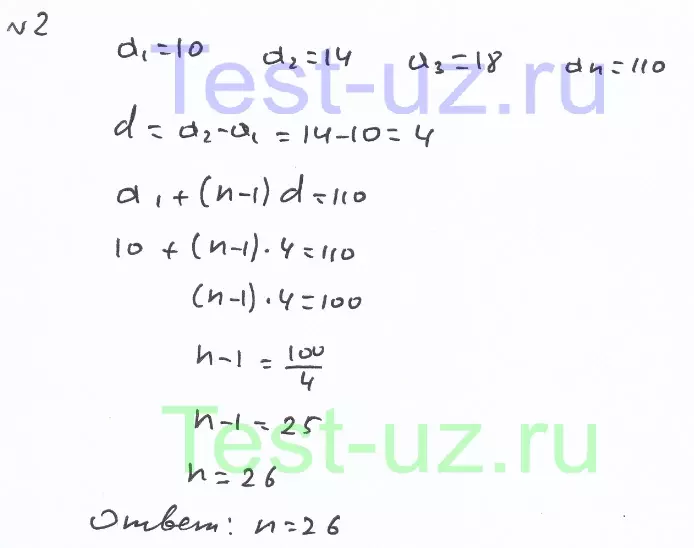 №2
a₁=10 a₂=14 a₃=18 an=110
Test-uz.ru
d=a₂-a₁=14-10=4
a₁+(n-1)d=110
10+(n-1)·4=110
(n-1)·4=100
n-1=100/4
n-1=25
Test-uz.ru
n=26
Ответ: n=26